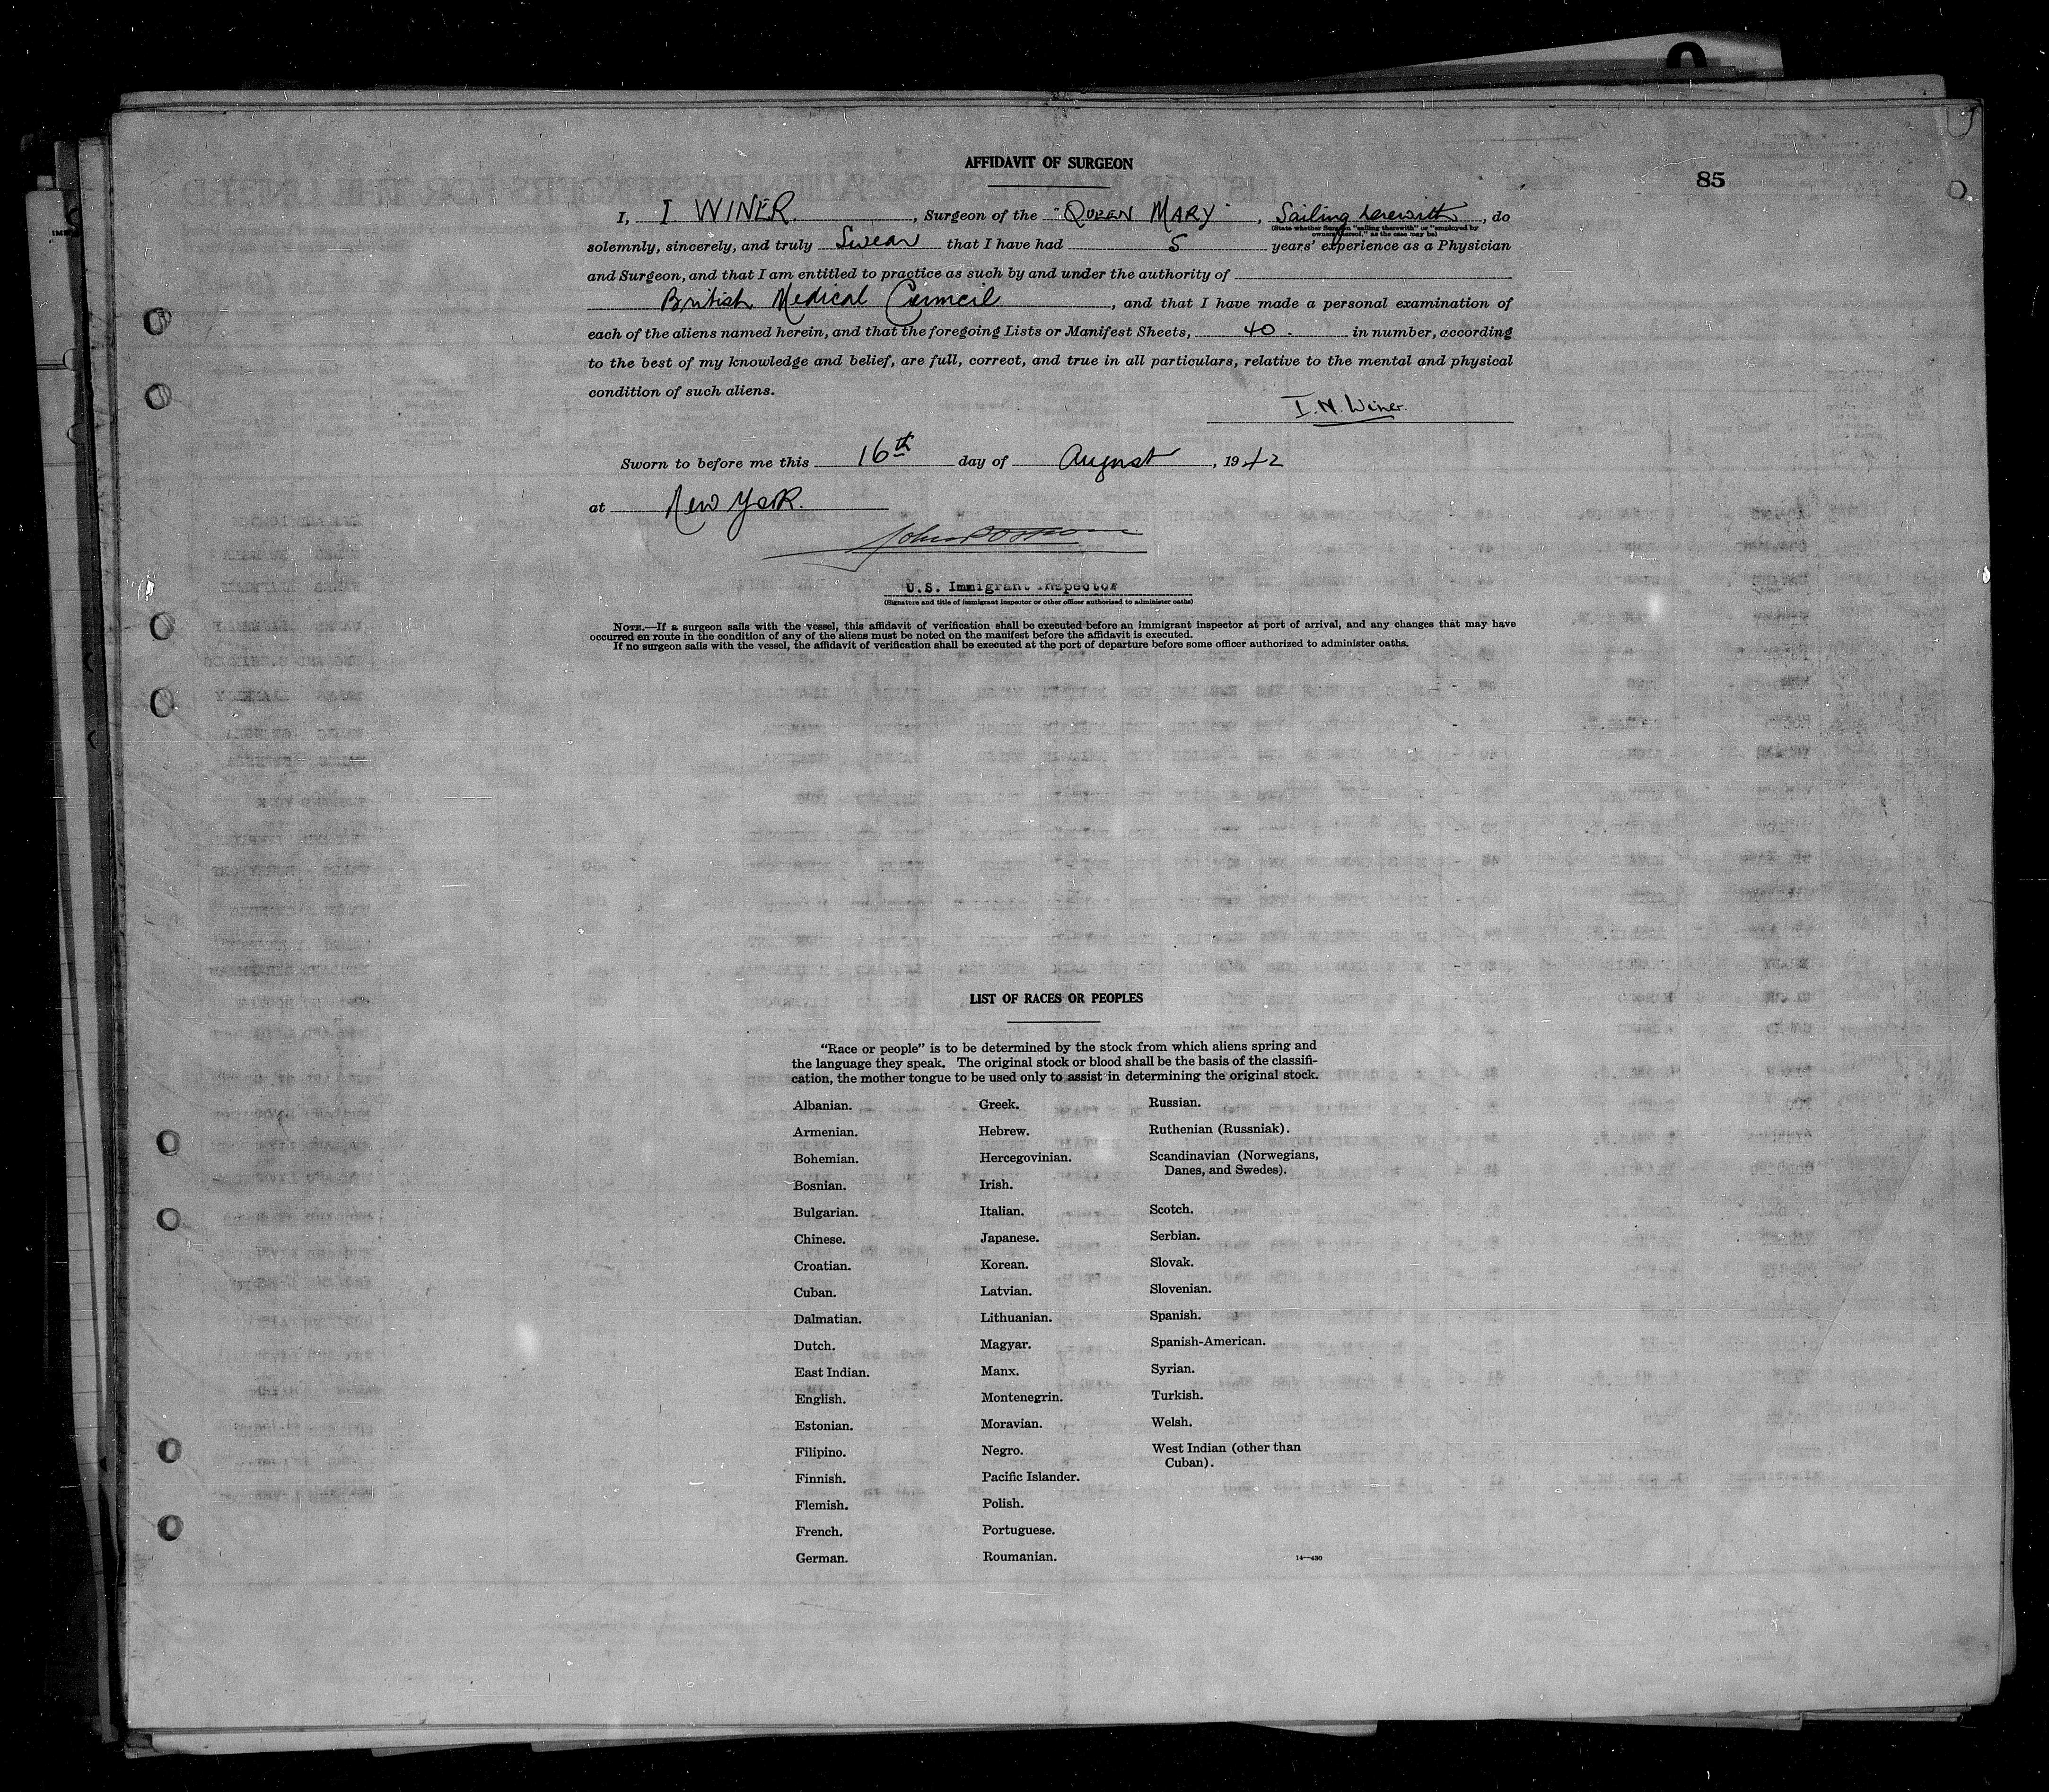 AFFIDAVIT OF SURGEON
85
I, I WINER, Surgeon of the "QUEEN MARY", Sailing herewith, do
(State whether Surgeon "sailing therewith" or "employed by
owners thereof," as the case may be)
solemnly, sincerely, and truly Swear that I have had 5 years' experience as a Physician
and Surgeon, and that I am entitled to practice as such by and under the authority of
British Medical Council, and that I have made a personal examination of
each of the aliens named herein, and that the foregoing Lists or Manifest Sheets, 40. in number, according
to the best of my knowledge and belief, are full, correct, and true in all particulars, relative to the mental and physical
condition of such aliens.
I. N. Winer.
Sworn to before me this 16th day of August, 1942
at New York.
U.S. Immigrant Inspector
(Signature and title of immigrant inspector or other officer authorized to administer oaths)
NOTE.—If a surgeon sails with the vessel, this affidavit of verification shall be executed before an immigrant inspector at port of arrival, and any changes that may have
occurred en route in the condition of any of the aliens must be noted on the manifest before the affidavit is executed.
If no surgeon sails with the vessel, the affidavit of verification shall be executed at the port of departure before some officer authorized to administer oaths.
LIST OF RACES OR PEOPLES
"Race or people" is to be determined by the stock from which aliens spring and
the language they speak. The original stock or blood shall be the basis of the classifi-
cation, the mother tongue to be used only to assist in determining the original stock.
Albanian.
Armenian.
Bohemian.
Bosnian.
Bulgarian.
Chinese.
Croatian.
Cuban.
Dalmatian.
Dutch.
East Indian.
English.
Estonian.
Filipino.
Finnish.
Flemish.
French.
German.
Greek.
Hebrew.
Hercegovinian.
Irish.
Italian.
Japanese.
Korean.
Latvian.
Lithuanian.
Magyar.
Manx.
Montenegrin.
Moravian.
Negro.
Pacific Islander.
Polish.
Portuguese.
Roumanian.
Russian.
Ruthenian (Russniak).
Scandinavian (Norwegians,
Danes, and Swedes).
Scotch.
Serbian.
Slovak.
Slovenian.
Spanish.
Spanish-American.
Syrian.
Turkish.
Welsh.
West Indian (other than
Cuban).
14—430